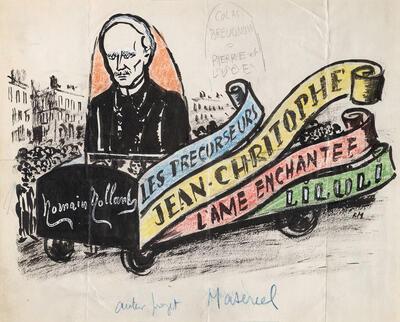 COLAS
BREUGNON
PIERRE et
LUCE
LES PRECURSEURS
JEAN-CHRITOPHE
L'AME ENCHANTEE
LILULI
Romain Rolland
autre projet Masereel